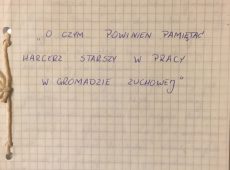 „O CZYM POWINIEN PAMIĘTAĆ
HARCERZ STARSZY W PRACY
W GROMADZIE ZUCHOWEJ"